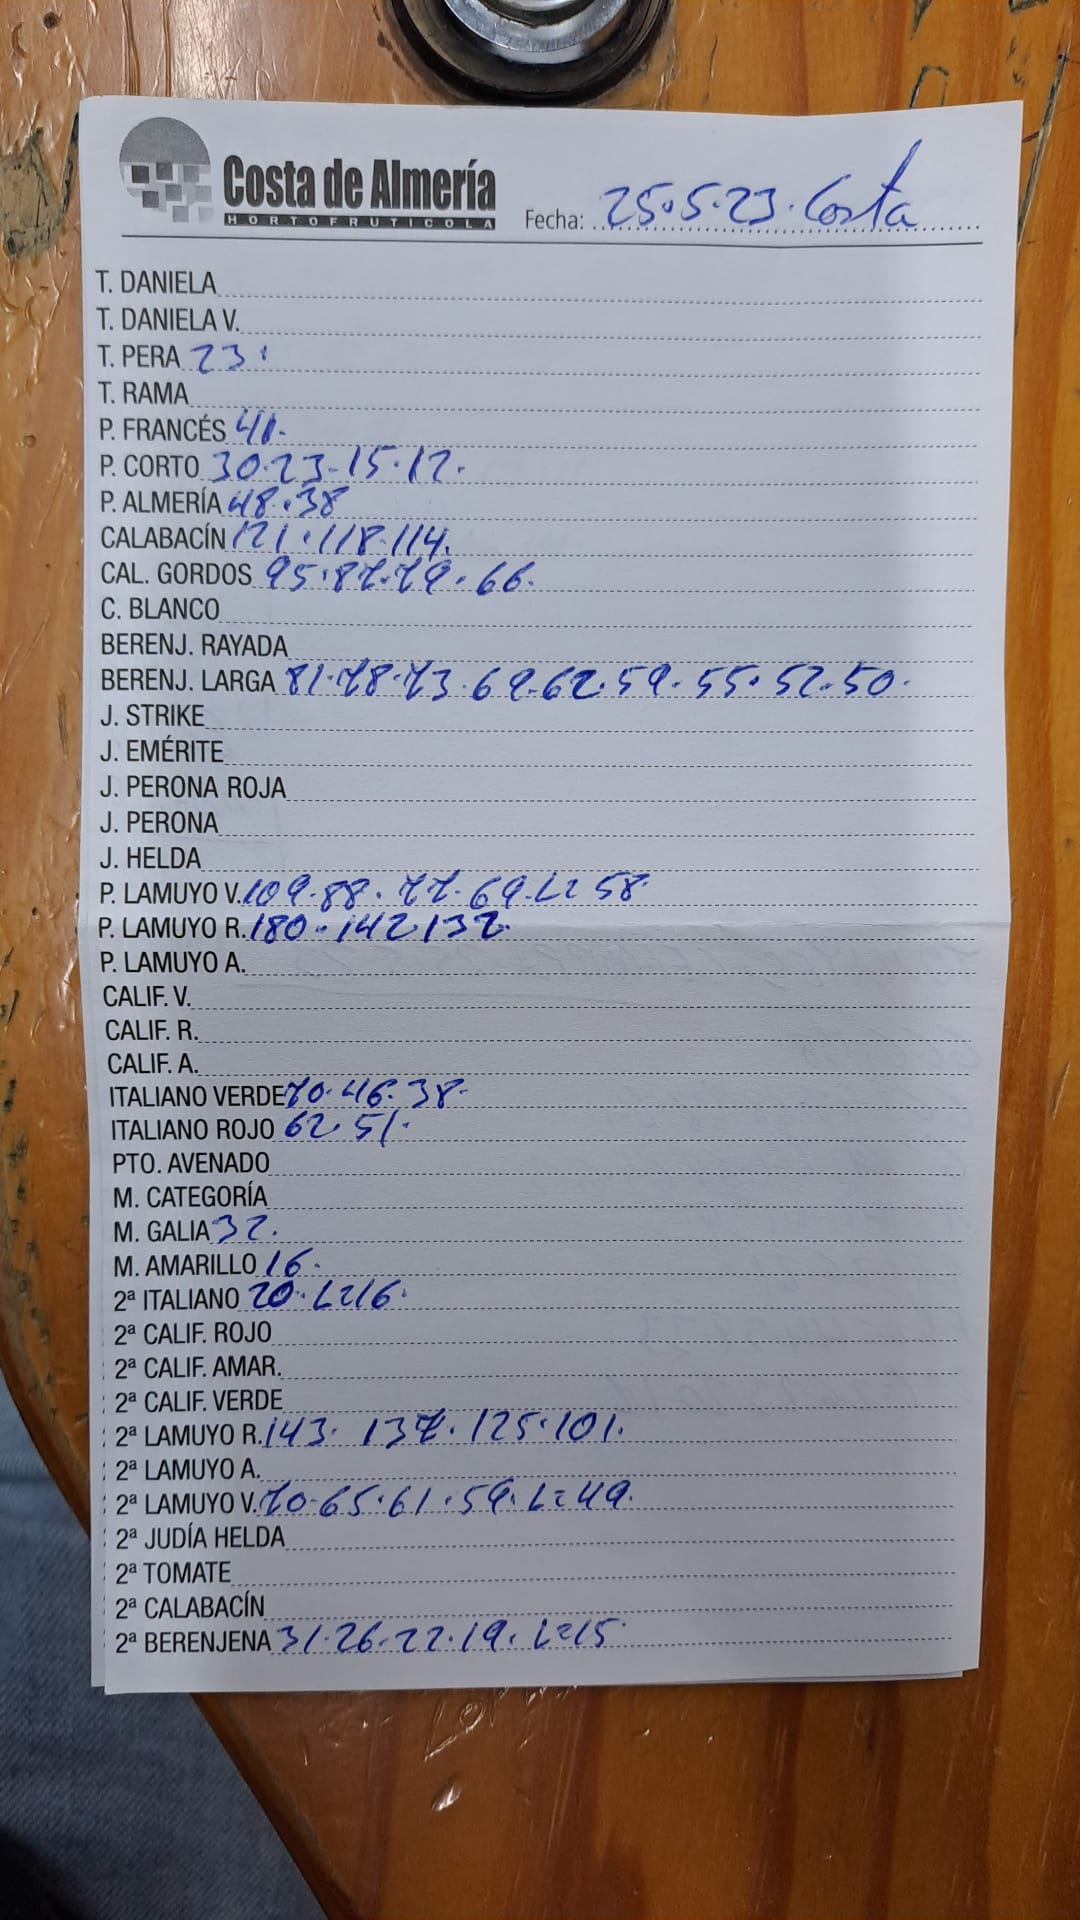 Costa de Almería
HORTOFRUTICOLA
Fecha: 25.5.23. Costa
T. DANIELA
T. DANIELA V.
T. PERA 23.
T. RAMA
P. FRANCÉS 41.
P. CORTO 30.23-15.12.
P. ALMERÍA 48.38
CALABACÍN 121.118.114.
CAL. GORDOS 95.87.79.66.
C. BLANCO
BERENJ. RAYADA
BERENJ. LARGA 81.78.73.69.62.59.55.52.50.
J. STRIKE
J. EMÉRITE
J. PERONA ROJA
J. PERONA
J. HELDA
P. LAMUYO V. 109.88.77.69.L=58.
P. LAMUYO R. 180.142.132.
P. LAMUYO A.
CALIF. V.
CALIF. R.
CALIF. A.
ITALIANO VERDE 70.46.38.
ITALIANO ROJO 62.51.
PTO. AVENADO
M. CATEGORÍA
M. GALIA 32.
M. AMARILLO 16.
2ª ITALIANO 20.L=16.
2ª CALIF. ROJO
2ª CALIF. AMAR.
2ª CALIF. VERDE
2ª LAMUYO R. 143.137.125.101.
2ª LAMUYO A.
2ª LAMUYO V. 70.65.61.59.L=49.
2ª JUDÍA HELDA
2ª TOMATE
2ª CALABACÍN
2ª BERENJENA 31.26.22.19.L=15.